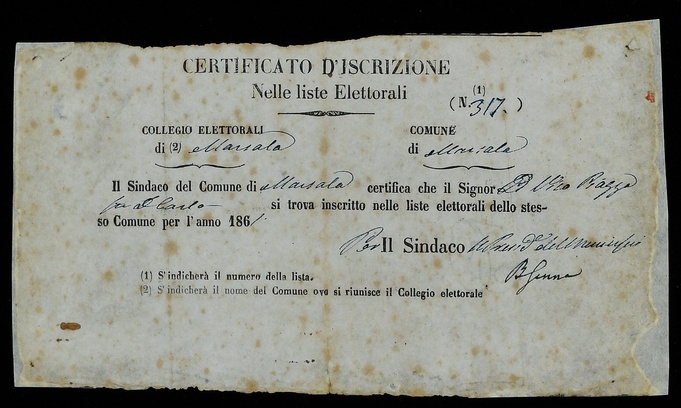 CERTIFICATO D'ISCRIZIONE
Nelle liste Elettorali
(1)
(N. 317. )
COLLEGIO ELETTORALI
di (2) Marsala
COMUNE
di Marsala
Il Sindaco del Comune di Marsala certifica che il Signor D. Vito
si trova inscritto nelle liste elettorali dello stes-
so Comune per l'anno 1861
Per Il Sindaco
(1) S'indicherà il numero della lista.
(2) S'indicherà il nome del Comune ove si riunisce il Collegio elettorale